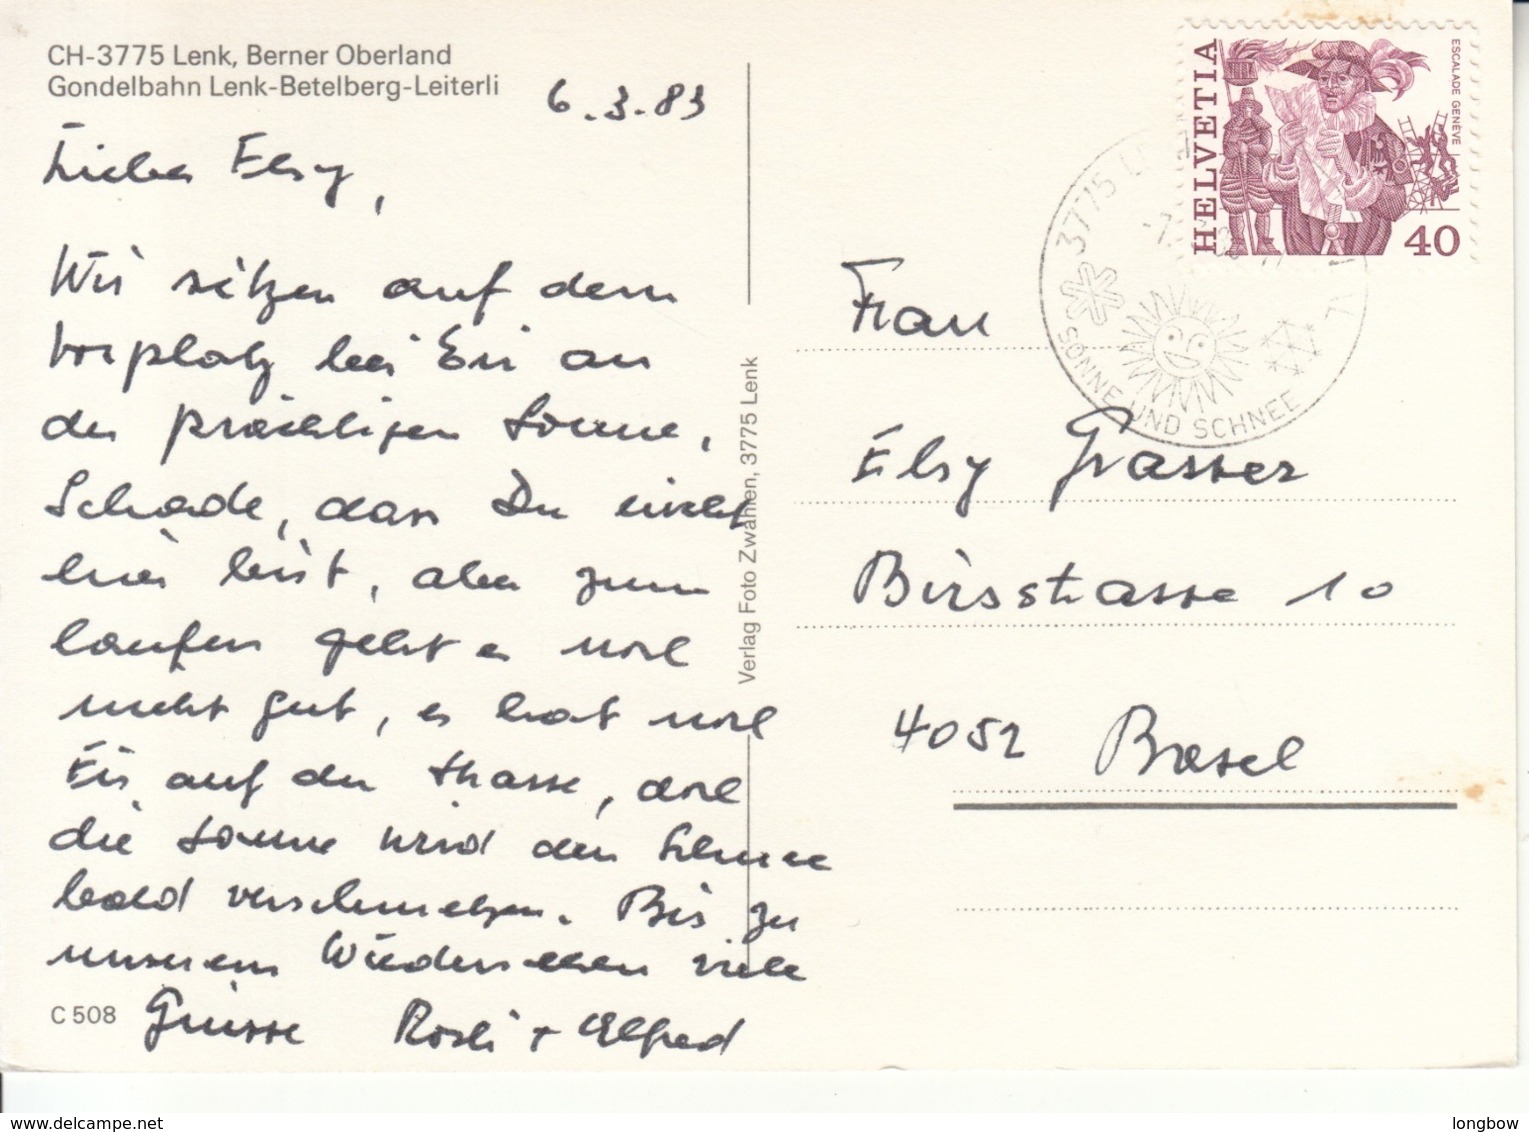 CH-3775 Lenk, Berner Oberland
Gondelbahn Lenk-Betelberg-Leiterli
6.3.83
Liebes Elsy,
Wir sitzen auf dem
Vorplatz bei Evi an
der prächtigen Sonne,
Schade, dass Du nicht
hier bist, aber zum
laufen geht es noch
nicht gut, es hat noch
Eis auf der Strasse, doch
die Sonne wird den Schnee
bald verschmelzen. Bis zu
unserem Wiedersehen viele
Grüsse Rösli + Alfred
C 508
Verlag Foto Zwahlen, 3775 Lenk
HELVETIA
ESCALADE GENÈVE
40
3775
SONNE UND SCHNEE
Frau
Elsy Grasser
Birsstrasse 10
4052 Basel
www.delcampe.net
longbow